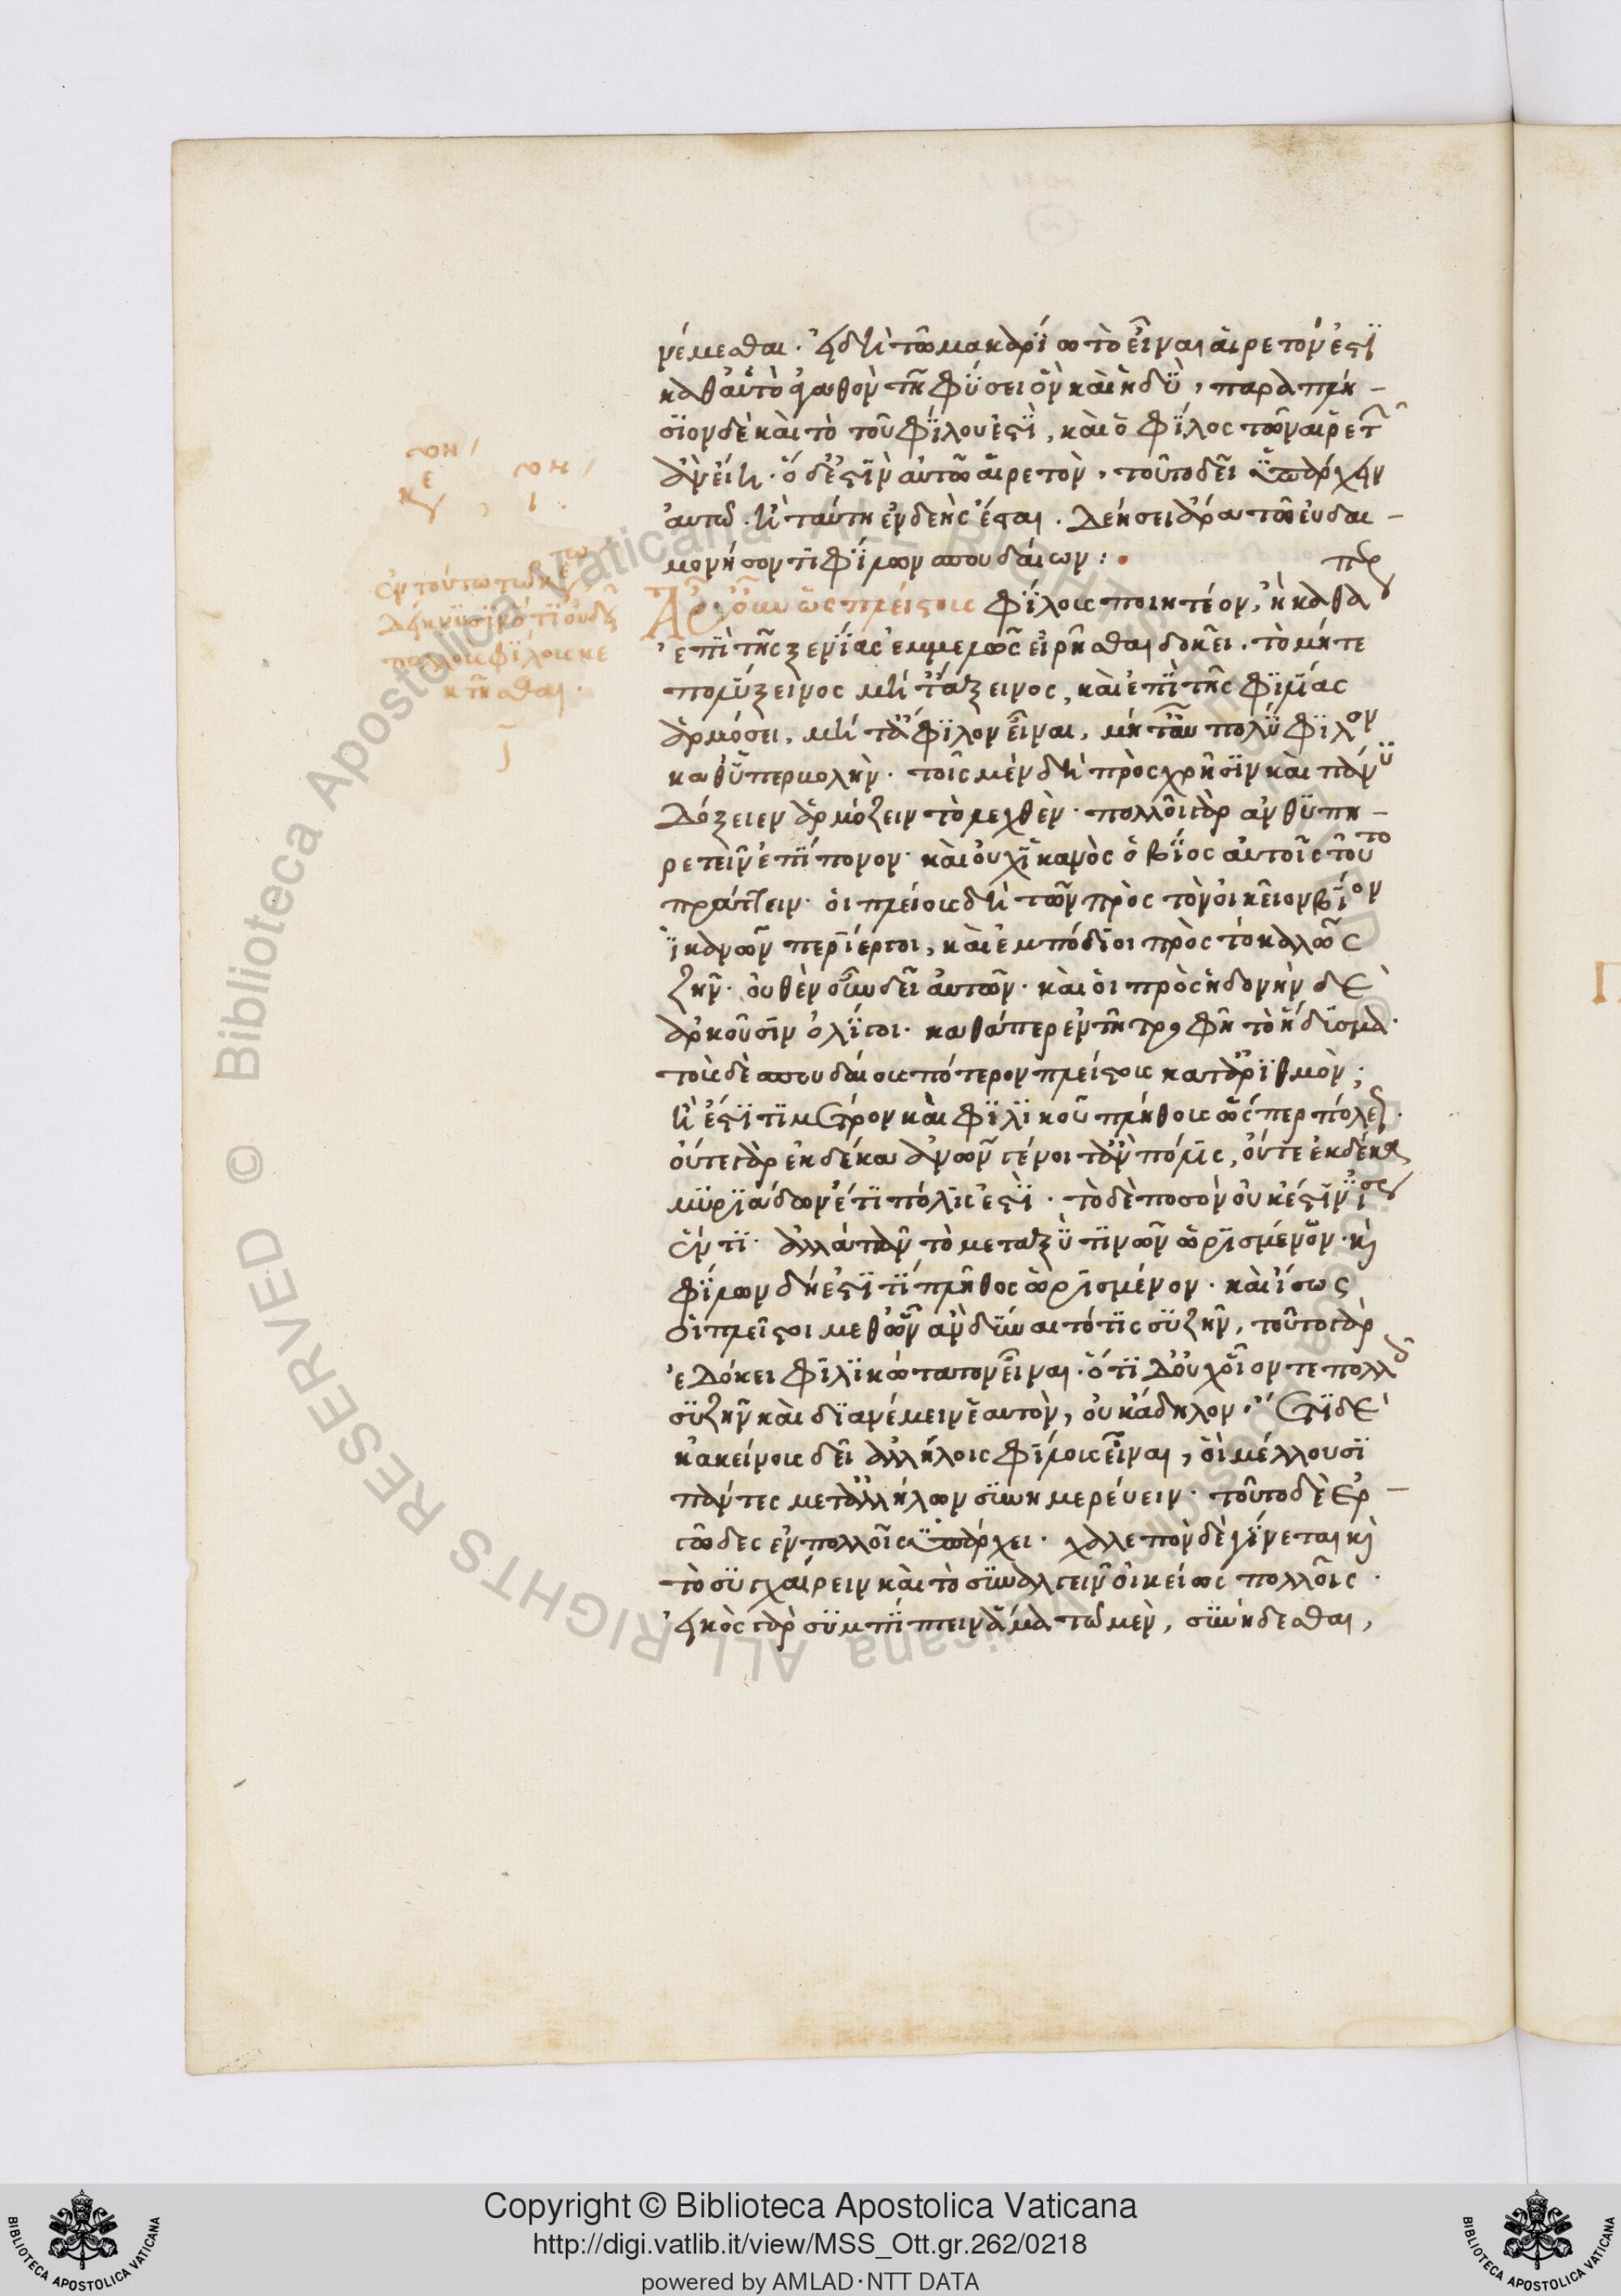 νέμεσθαι. εἰ δὴ τῶ μακαρίω τὸ εἶναι αἱρετόν ἐστι
καθ' αὑτὸ ἀγαθὸν τῆ φύσει ὂν καὶ ἡδὺ, παραπλη-
σιον δὲ καὶ τὸ τοῦ φίλου ἐστὶ, καὶ ὁ φίλος τῶν αἱρετῶν
ἂν εἴη. ὃ δ' ἐστὶν αὐτῶ αἱρετὸν, τοῦτο δεῖ ὑπάρχειν
αὐτῶ. ἢ ταύτη ἐνδεὴς ἔσται. δεήσει ἄρα τῶ εὐδαι-
μονήσοντι φίλων σπουδαίων :
ἐν τούτω τῶ κε τω
δείκνυσιν ὅτι οὐ δεῖ
πολλοὺς φίλους κε
κτῆσθαι.
Ἆρ' οὖν ὡς πλείστους φίλους ποιητέον, ἢ καθάπερ
ἐπὶ τῆς ξενίας ἐμμελῶς εἰρῆσθαι δοκεῖ. τὸ μήτε
πολύξεινος μήτ' ἄξεινος, καὶ ἐπὶ τῆς φιλίας
ἁρμόσει, μήτ' ἄφιλον εἶναι, μήτ' αὖ πολύφιλον
καθ' ὑπερβολὴν. τοῖς μὲν δὴ πρὸς χρῆσιν καὶ πάνυ
δόξειεν ἁρμόζειν τὸ λεχθὲν. πολλοῖς γὰρ ἀνθυπη-
ρετεῖν ἐπίπονον. καὶ οὐχ ἱκανὸς ὁ βίος αὐτοῖς τοῦτο
πράττειν. οἱ πλείους δὴ τῶν πρὸς τὸν οἰκεῖον βίον
ἱκανῶν περίεργοι, καὶ ἐμπόδιοι πρὸς τὸ καλῶς
ζῆν. οὐθὲν οὖν δεῖ αὐτῶν. καὶ οἱ πρὸς ἡδονὴν δὲ
ἀρκοῦσιν ὀλίγοι. καθάπερ ἐν τῆ τροφῆ τὸ ἥδυσμα.
τοὺς δὲ σπουδαίους πότερον πλείστους κατ' ἀριθμὸν;
ἢ ἔστι τι μέτρον καὶ φιλικοῦ πλήθους ὥσπερ πόλεως.
οὔτε γὰρ ἐκ δέκα ἀνῶν γένοιτ' ἂν πόλις, οὔτε ἐκ δέκα
μυριάδων ἔτι πόλις ἐστὶ. τὸ δὲ ποσὸν οὐκ ἔστιν ἴσως
ἕν τι. ἀλλὰ πᾶν τὸ μεταξὺ τινῶν ὡρισμένων. καὶ
φίλων δή ἐστι τι πλῆθος ὡρισμένον. καὶ ἴσως
οἱ πλεῖστοι μεθ' ὧν ἂν δύναιτό τις συζῆν, τοῦτο γὰρ
ἐδόκει φιλικώτατον εἶναι. ὅτι δ' οὐχ οἷόν τε πολλοῖς
συζῆν καὶ διανέμειν ἑαυτὸν, οὐκ ἄδηλον. ἔτι δὲ
κἀκείνους δεῖ ἀλλήλοις φίλους εἶναι, οἳ μέλλουσι
πάντες μετ' ἀλλήλων συνημερεύειν. τοῦτο δὲ ἐρ-
γῶδες ἐν πολλοῖς ὑπάρχει. χαλεπὸν δὲ γίνεται καὶ
τὸ συγχαίρειν καὶ τὸ συναλγεῖν οἰκείως πολλοῖς.
εἰκὸς γὰρ συμπίπτειν ἅμα τῶ μὲν, συνήδεσθαι,
Copyright © Biblioteca Apostolica Vaticana
http://digi.vatlib.it/view/MSS_Ott.gr.262/0218
powered by AMLAD·NTT DATA